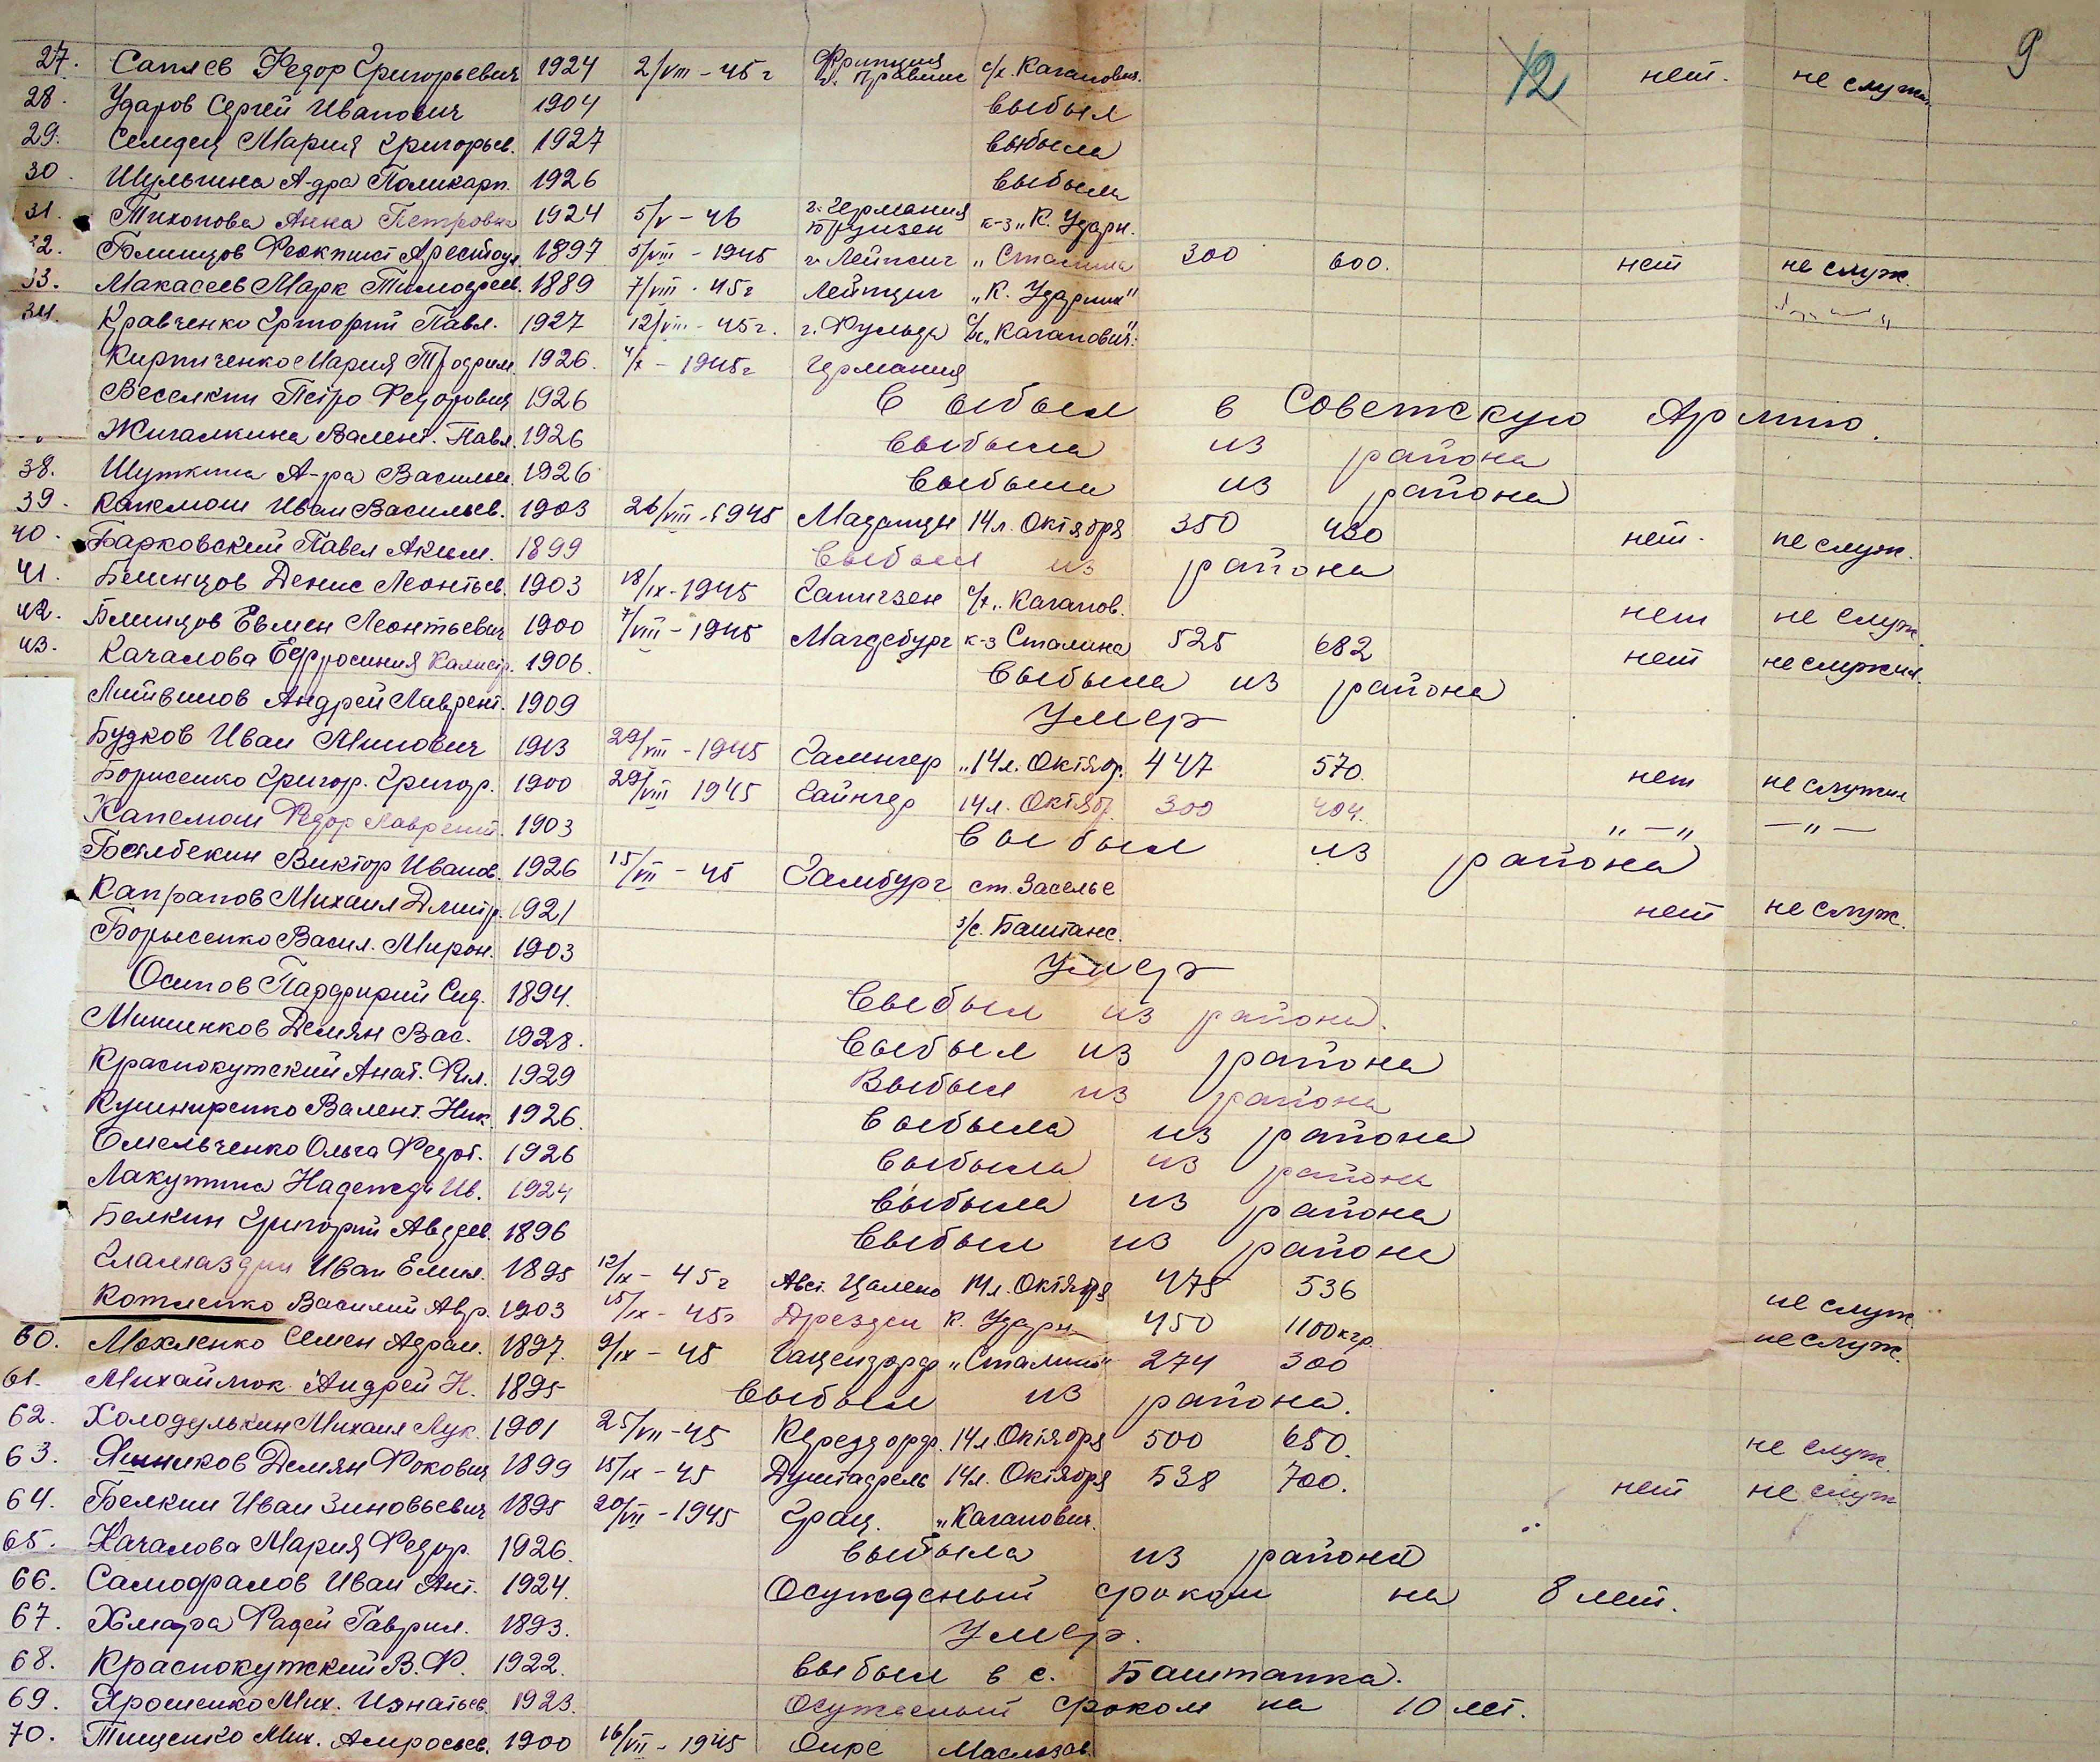 12 9
27. Сапяев Федор Григорьевич 1924 2/VIII - 45 г Франция г. с/х. Каганович. нет. не служ.
28. Ударов Сергей Иванович 1904 выбыл
29. Мария Григорьев. 1927 выбыла
30. Шульгина А-дра Поликарп. 1926 выбыла
31. Тихонова Анна Петровна 1924 5/V - 46 г. Германия к-з „К. Ударн.
32. Блинцов Феоктист 1897 5/VIII - 1945 г. Лейпсиг „Сталина 300 600. нет не служ.
33. Макасеев Марк Тимофеев. 1889 7/VIII - 45 г Лейпциг „К. Ударник"
34. Кравченко Григорий Павл. 1927 12/VIII - 45 г. г. Фульда с/х „Каганович".
Кирпиченко Мария Трофим. 1926. 4/X - 1945 г Германия
Веселкин Петро Федорович 1926 выбыл в Советскую Армию.
Жигалкина Валент. Павл. 1926 выбыла из района
38. Шуткина А-ра Васильев. 1926 выбыла из района
39. Иван Васильев. 1903 26/VIII - 1945 14 л. Октября 350 430 нет. не служ.
40. Барковский Павел Аким. 1899 выбыл из района
41. Блинцов Денис Леонтьев. 1903 18/IX - 1945 с/х „Каганов. нет не служ.
42. Блинцов Евмен Леонтьевич 1900 7/VIII - 1945 Магдебург к-з Сталина 525 682 нет не служил.
43. Качалова Ефросиния Калистр. 1906. выбыла из района
Литвинов Андрей Лаврент. 1909 Умер
Будков Иван Минович 1913 29/VIII - 1945 „14 л. Октябр. 447 570. нет не служил
Борисенко Григор. Григор. 1900 29/VIII 1945 14 л. Октяб. 300 404. „ — „ — „ —
Федор Лаврентий. 1903 выбыл из района
Виктор Иванов. 1926 15/VII - 45 Гамбург ст. Заселье
Капранов Михаил Дмитр. 1921 з/с. Баштанс. нет не служ.
Борысенко Васил. Мирон. 1903 Умер
Осипов Парфирий Сид. 1894. выбыл из района.
Мишенков Демян Вас. 1928. выбыл из района
Краснокутский Анат. Фил. 1929 Выбыл из района
Кушниренко Валент. Ник. 1926. выбыла из района
Омельченко Ольга Федот. 1926 выбыла из района
Лакутина Надежда Ив. 1924 выбыла из района
Белкин Григорий Авдеев. 1896 выбыл из района
Гламаздин Иван Емил. 1895 12/IX - 45 г Авст. 14 л. Октября 475 536 не служ.
Котленко Василий Авр. 1903 15/IX - 45 г Дрезден К. Ударн. 450 1100 кгр. не служ.
60. Мохленко Семен Адрам. 1897. 9/IX - 45 „Сталина" 274 300
61. Михайлюк Андрей Н. 1895 выбыл из района.
62. Холодулькин Михаил Лук. 1901 25/VII - 45 14 л. Октября 500 650. не служ.
63. Демян Фокович 1899 15/IX - 45 14 л. Октября 538 700. нет не служ
64. Белкин Иван Зиновьевич 1895 20/VII - 1945 Грац. „Каганович.
65. Качалова Мария Федор. 1926. выбыла из района
66. Самофалов Иван Ант. 1924. Осужденый сроком на 8 лет.
67. Хмара Фадей Гаврил. 1893. Умер.
68. Краснокутский В. Ф. 1922. выбыл в с. Баштанка.
69. Ярошенко Мих. Игнатьев. 1923. Осужденый сроком на 10 лет.
70. Тищенко Мих. Амросьев. 1900 16/VII - 1945 Маслозав.